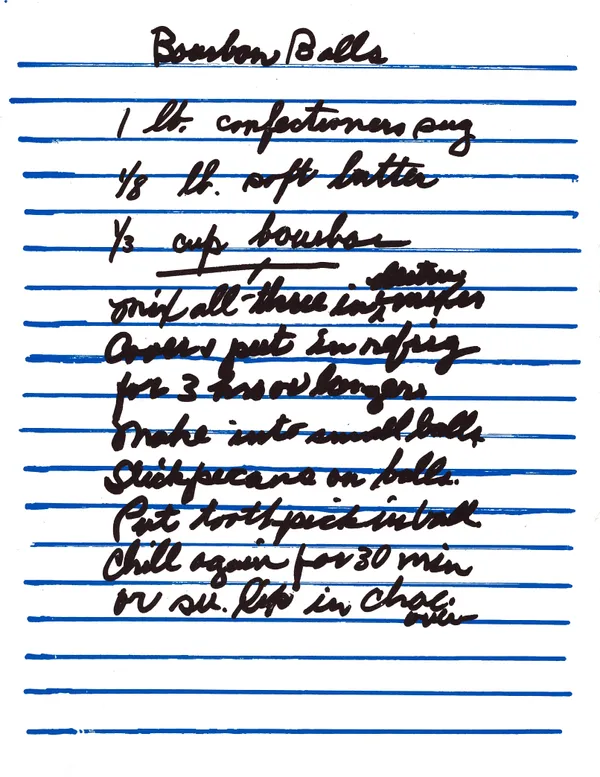 Bourbon Balls
1 lb. confectioners sug
1/8 lb. soft butter
1/3 cup bourbon
Mix all three in electric mixer
Cover & put in refrig
for 3 hrs or longer.
Make into small balls
Stick pecans on balls.
Put toothpick in ball.
Chill again for 30 min
or so. Dip in choc.
over